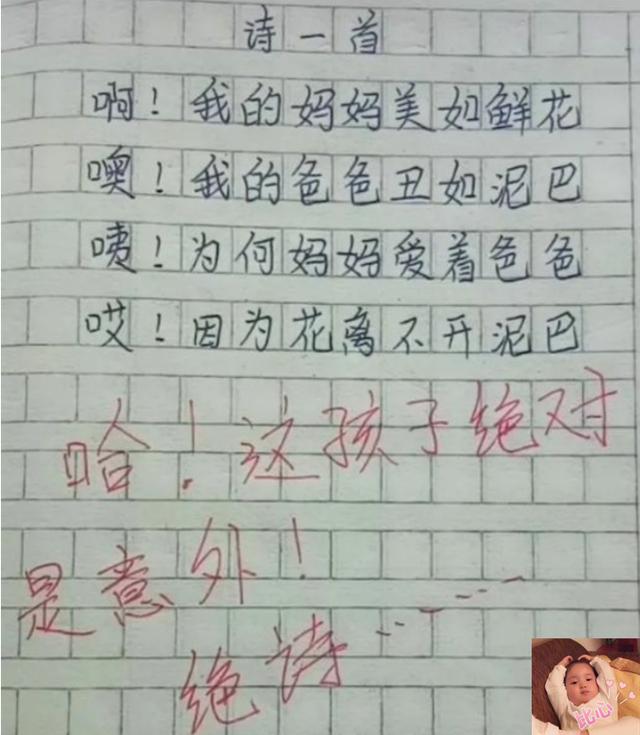 诗一首
啊！我的妈妈美如鲜花
噢！我的爸爸丑如泥巴
咦！为何妈妈爱着爸爸
哎！因为花离不开泥巴
哈！这孩子绝对
是意外！
绝诗……
比心